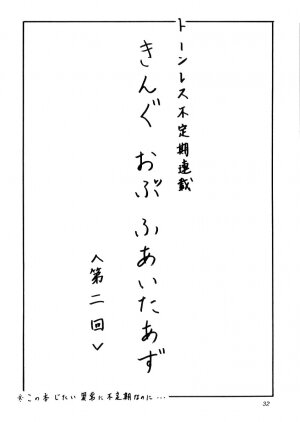 トーンレス不定期連載
きんぐ おぶ ふぁいたあず
<第二回>
※この本じたい異常に不定期なのに...
32